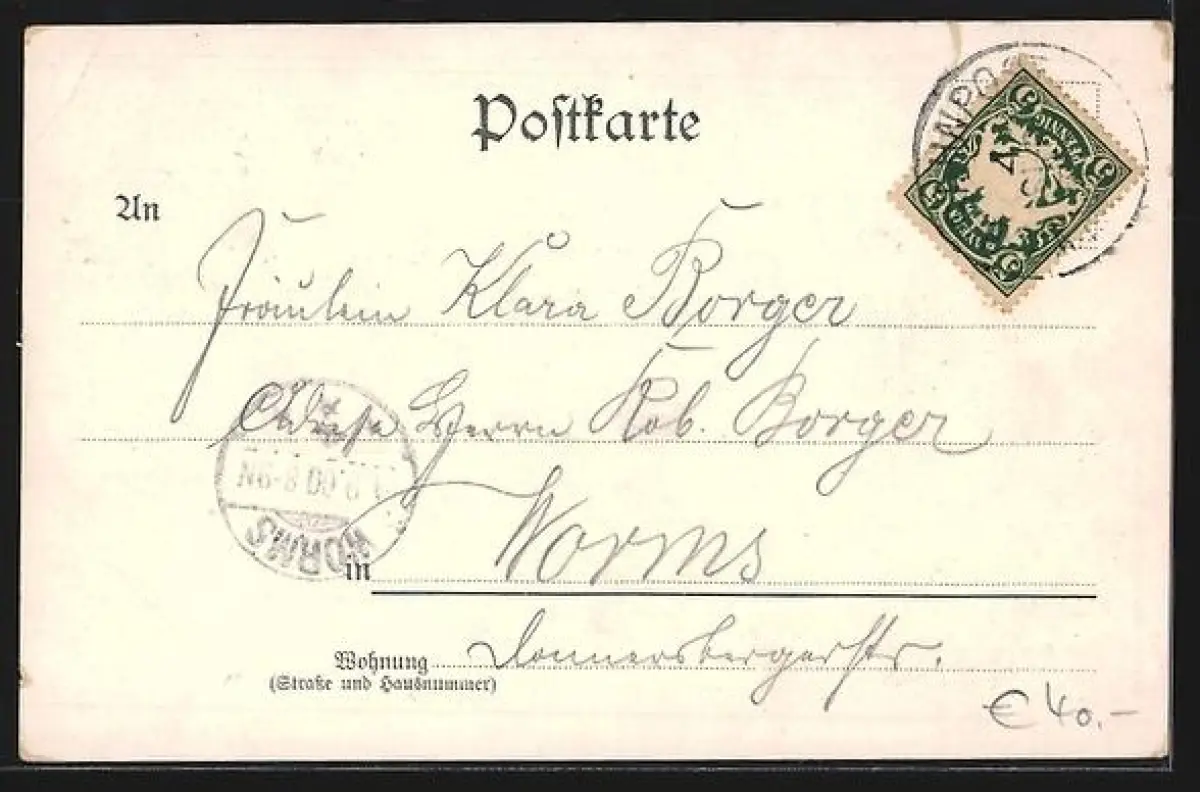 Postkarte
An
Fräulein Klara Borger
Adresse Herrn Rob. Borger
in Worms
Wohnung Donnersbergerstr.
(Straße und Hausnummer)
WORMS
€ 40.-